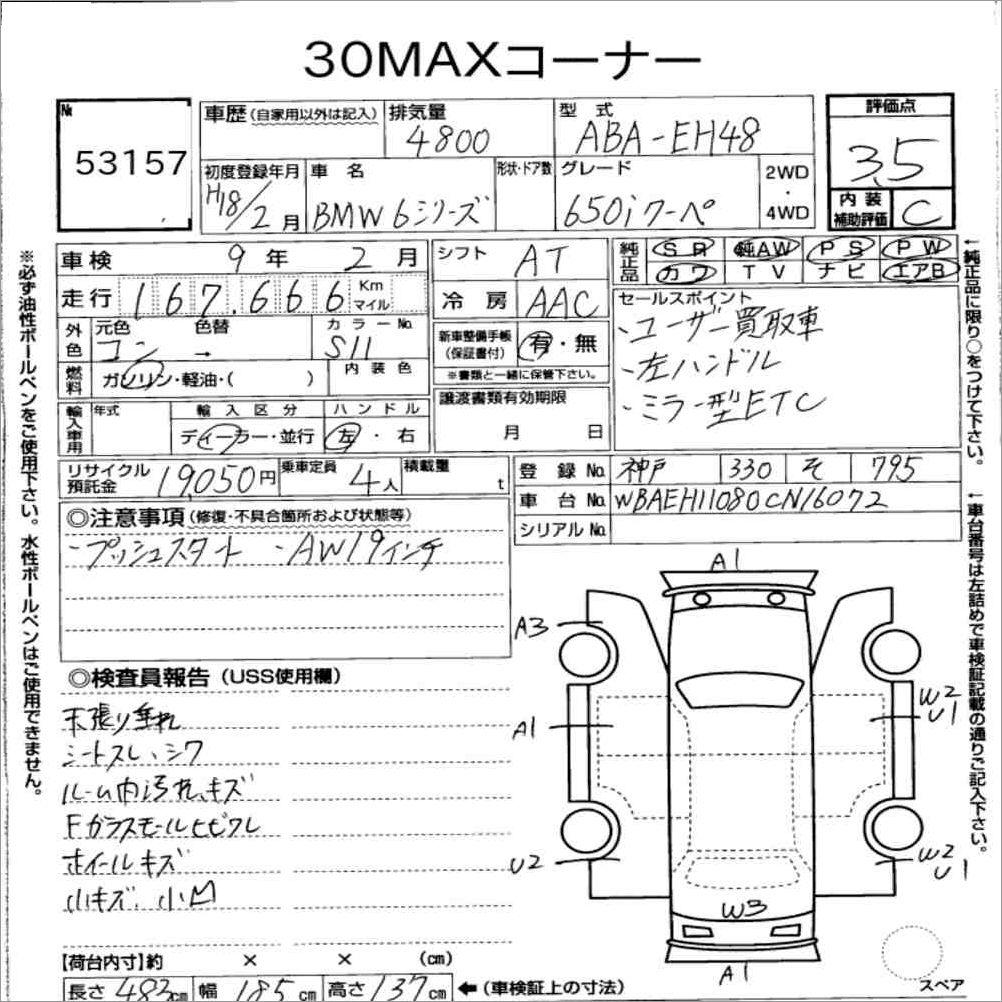 30MAXコーナー
№ 53157
車歴 (自家用以外は記入) 排気量 4800 型式 ABA-EH48 評価点 3.5
初度登録年月 H18/2月 車名 BMW6シリーズ 形状・ドア数 グレード 650iクーペ 2WD・4WD 内装補助評価 C
車検 9年 2月 シフト AT 純正品 SR 純AW PS PW
カワ TV ナビ エアB
走行 167,666 Km マイル 冷房 AAC セールスポイント
外色 元色 コン 色替 → カラーNo. S11 新車整備手帳 (保証書付) 有・無
※書類と一緒に保管下さい。
・ユーザー買取車
・左ハンドル
・ミラー型ETC
燃料 ガソリン・軽油・( ) 内装色
譲渡書類有効期限 月 日
輸入車用 年式 輸入区分 ディーラー・並行 ハンドル 左・右
リサイクル預託金 19,050円 乗車定員 4人 積載量 t
登録No. 神戸 330 そ 795
車台No. WBAEH11080CN16072
シリアルNo.
◎注意事項 (修復・不具合箇所および状態等)
・プッシュスタート ・AW19インチ
◎検査員報告 (USS使用欄)
天張り垂れ
シートスレ、シワ
ルーム内汚れ、キズ
Fガラスモールヒビワレ
ホイールキズ
小キズ、小凹
A1
A3
A1
W2
U1
U2
W2
U1
W3
A1
スペア
【荷台内寸】約 × × (cm)
長さ 483cm 幅 185cm 高さ 137cm ←(車検証上の寸法)
※必ず油性ボールペンをご使用下さい。水性ボールペンはご使用できません。
←純正品に限り○をつけて下さい。
←車台番号は左詰めで車検証記載の通りご記入下さい。